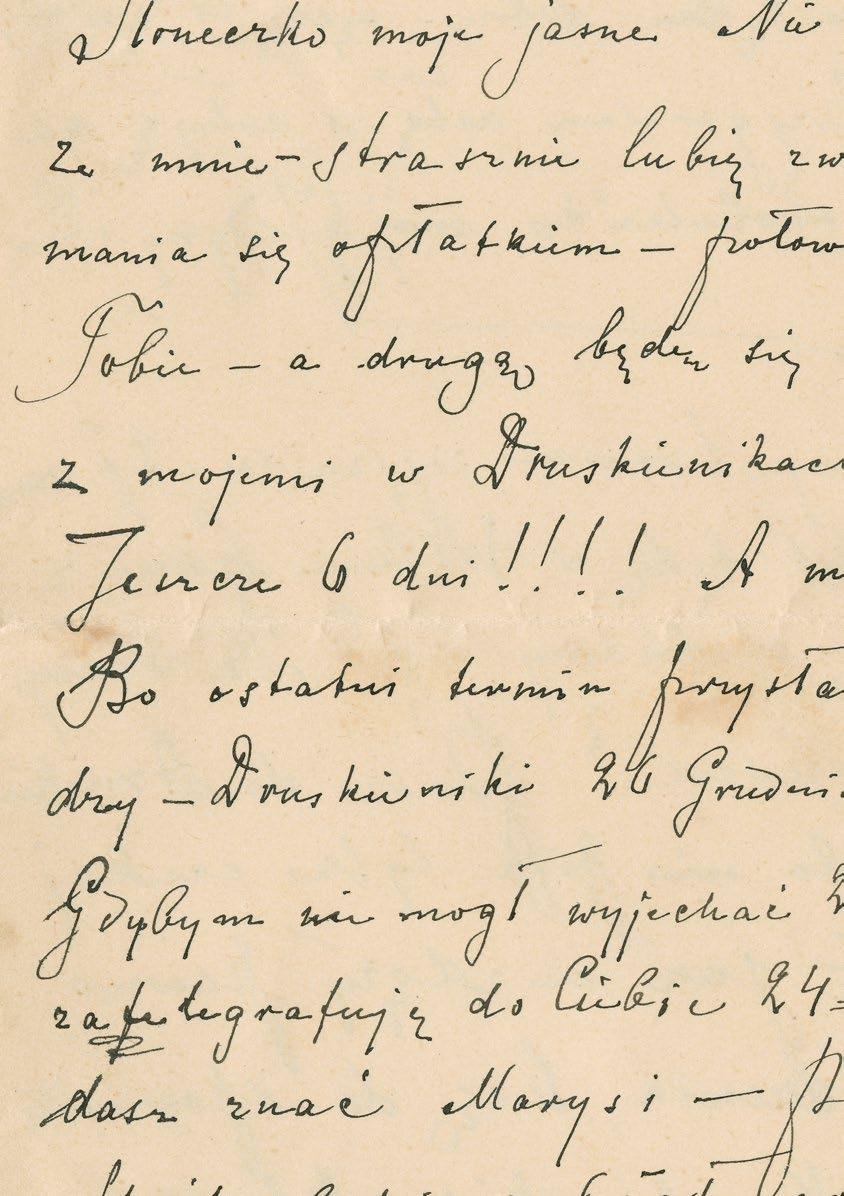 Słoneczko moje jasne Nie
ze mnie – strasznie lubię zw
mania się opłatkiem – połow
Tobie – a drugą będę się
z mojemi w Druskienikach
Jeszcze 6 dni!!!! A m
Bo ostatni termin przysta
dzy – Druskieniki 26 Grudni
Gdybym nie mogł wyjechać 2
zatelegrafuję do Ciebie 24=
dasz znać Marysi –